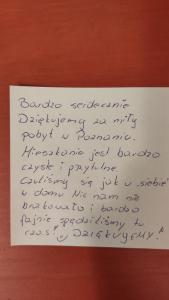 Bardzo serdecznie
Dziękujemy za miły
pobyt w Poznaniu.
Mieszkanie jest bardzo
czyste i przytulne
Czuliśmy się jak u siebie
w domu. Nic nam nie
brakowało i bardzo
fajnie spędziliśmy tu
czas! DZIĘKUJEMY!